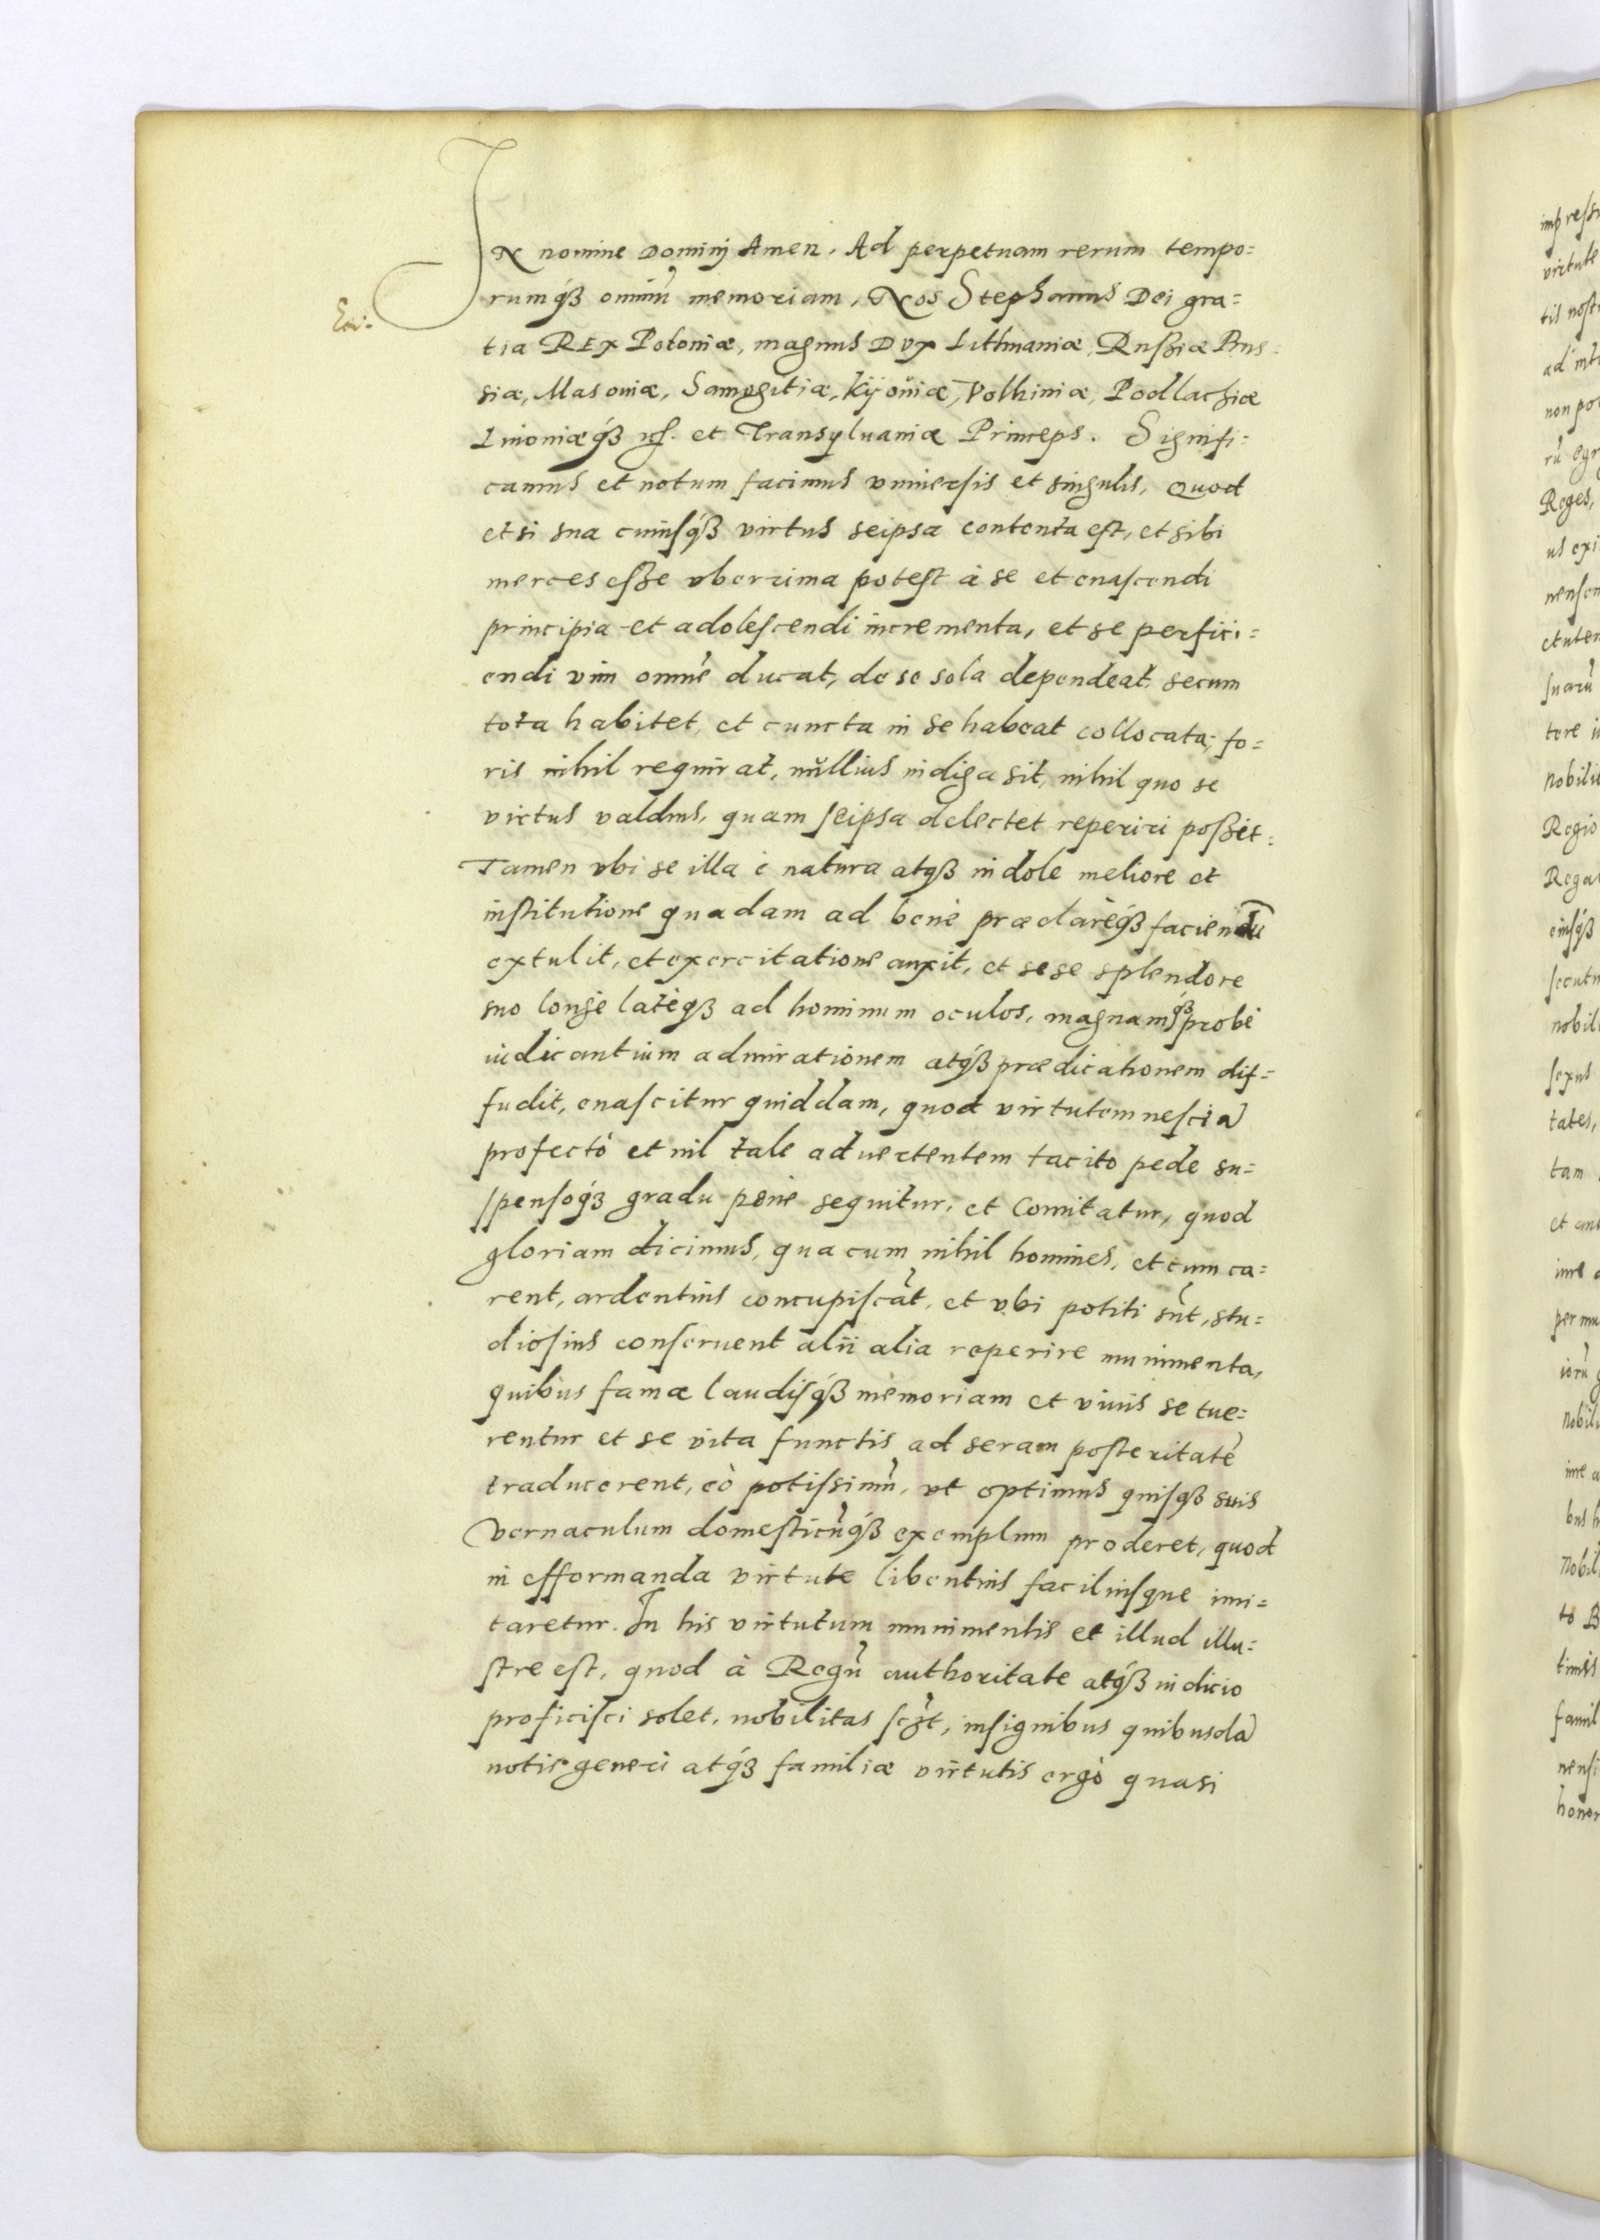 IN nomine Dominj Amen. Ad perpetuam rerum tempo=
rumq́ꝫ omniũ memoriam, Nos Stephanus Dei gra=
Ex:
tia REX Poloniæ, magnus DVX Lithuaniæ, Rußiæ Prus=
siæ, Masouiæ, Samogitiæ, Kijouiæ, Volhiniæ, Podlachiæ
Liuoniæq́ꝫ et Transyluaniæ Princeps. Signifi=
camus et notum facimus vniuersis et singulis, Quod
et si sua cuiusq́ꝫ virtus seipsa contenta est, et sibi
merces eße vberrima potest à se et enascendi
principia et adolescendi incrementa, et se perfici=
endi vim omnẽ ducat, de se sola dependeat, secum
tota habitet, et cuncta in se habeat collocata; fo=
ris nihil requirat, nullius indiga sit, nihil quo se
virtus validius, quam seipsa delectet reperiri poßit:
Tamen vbi se illa è natura atqꝫ indole meliore et
institutione quadam ad bene præclarèq́ꝫ faciendũ
extulit, et exercitatione auxit, et sese splendore
suo longe latèqꝫ ad hominum oculos, magnamq́ꝫ probè
iudicantium admirationem atq́ꝫ prædicationem dif=
fudit, enascitur quiddam, quod virtutem nesciã
profectò et nil tale aduertentem tacito pede su=
spensoq́ꝫ gradu pone sequitur, et Comitatur, quod
gloriam dicimus, qua cum nihil homines, et cum ca=
rent, ardentius concupiscãt, et vbi potiti sũt, stu=
diosius conseruent alii alia reperire munimenta,
quibus famæ laudisq́ꝫ memoriam et viuis se tue=
rentur et se vita functis ad seram posteritatẽ
traducerent, eò potissimũ, vt optimus quisqꝫ suis
vernaculum domesticũq́ꝫ exemplum proderet, quod
in efformanda virtute libentius faciliusque imi=
taretur. In his virtutum munimentis et illud illu=
stre est, quod à Regũ authoritate atq́ꝫ iudicio
proficisci solet, nobilitas scꝫt, insignibus quibusdã
notis generi atq́ꝫ familiæ virtutis ergò quasi